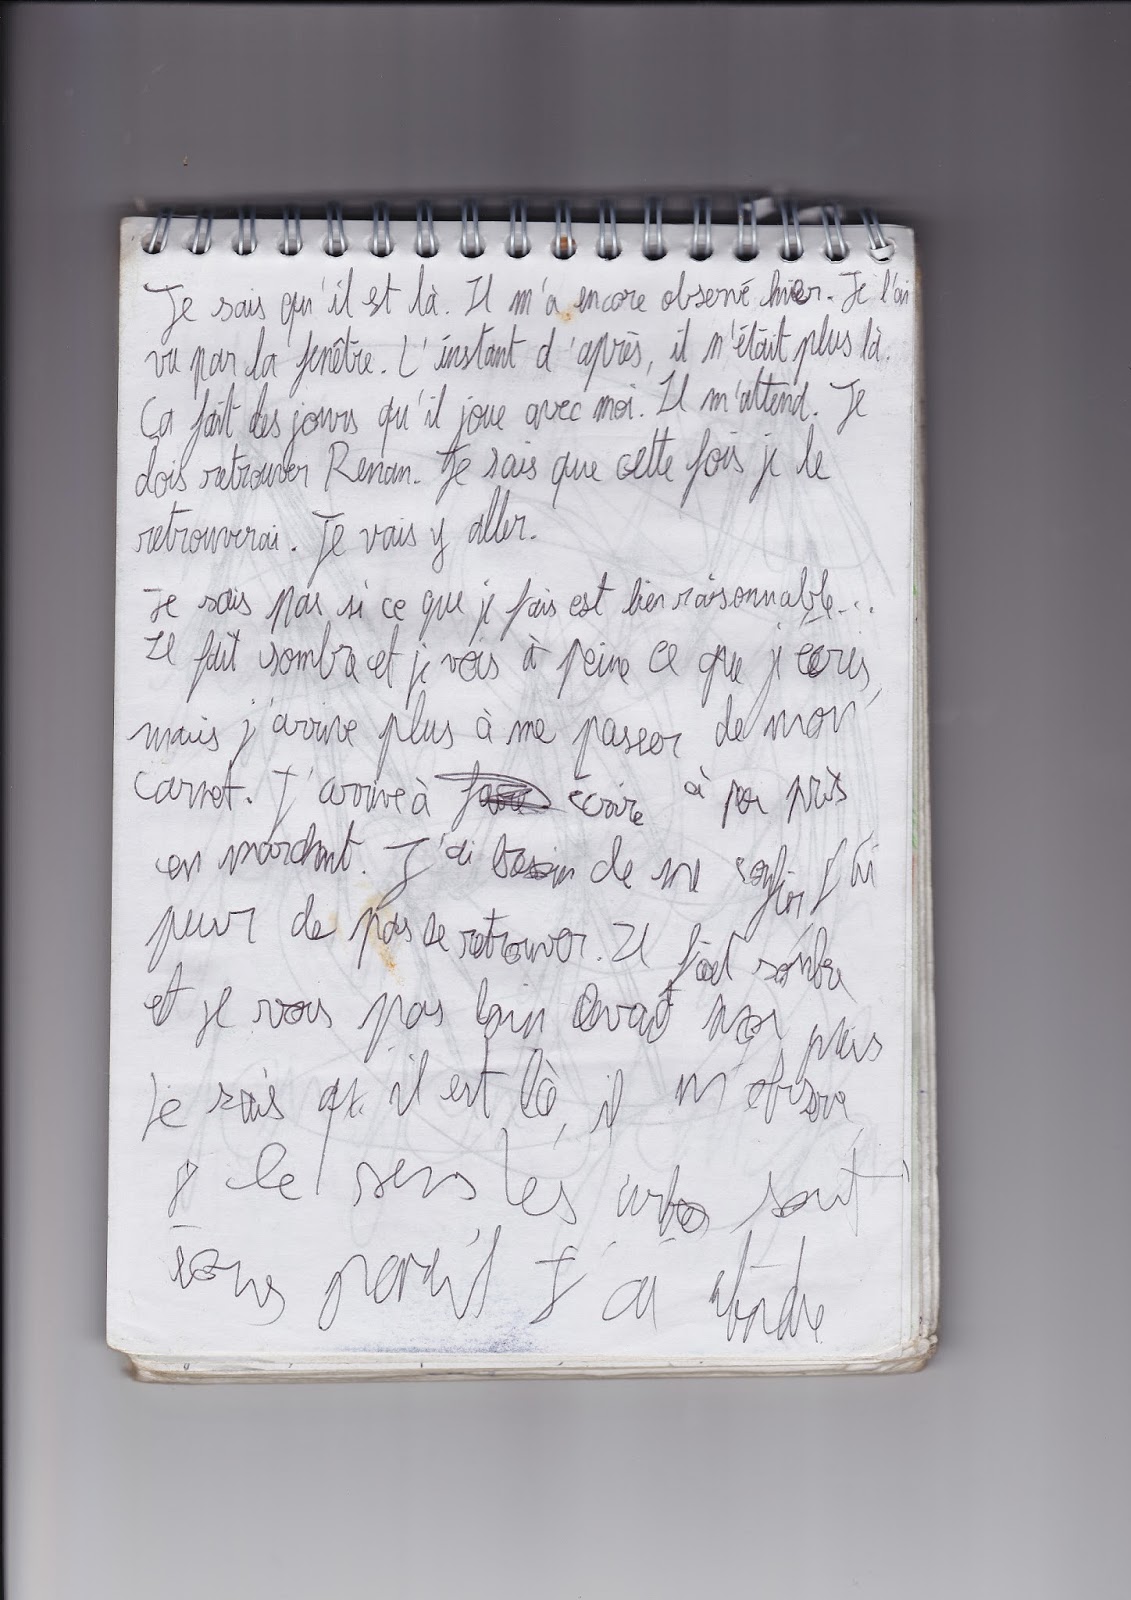 Je sais qu'il est là. Il m'a encore observé hier. Je l'ai
vu par la fenêtre. L'instant d'après, il n'était plus là.
Ça fait des jours qu'il joue avec moi. Il m'attend. Je
dois retrouver Renan. Je sais que cette fois je le
retrouverai. Je vais y aller.
Je sais pas si ce que je fais est bien raisonnable...
Il fait sombre et je vois à peine ce que j'écris,
mais j'arrive plus à me passer de mon
carnet. J'arrive à écrire à peu près
en marchant. J'ai besoin de me confier J'ai
peur de pas le retrouver. Il fait sombre
et je vois pas loin devant moi mais
Je sais qu. il est là, il m'observe,
je le sens les arbres sont
tous pareil J'ai